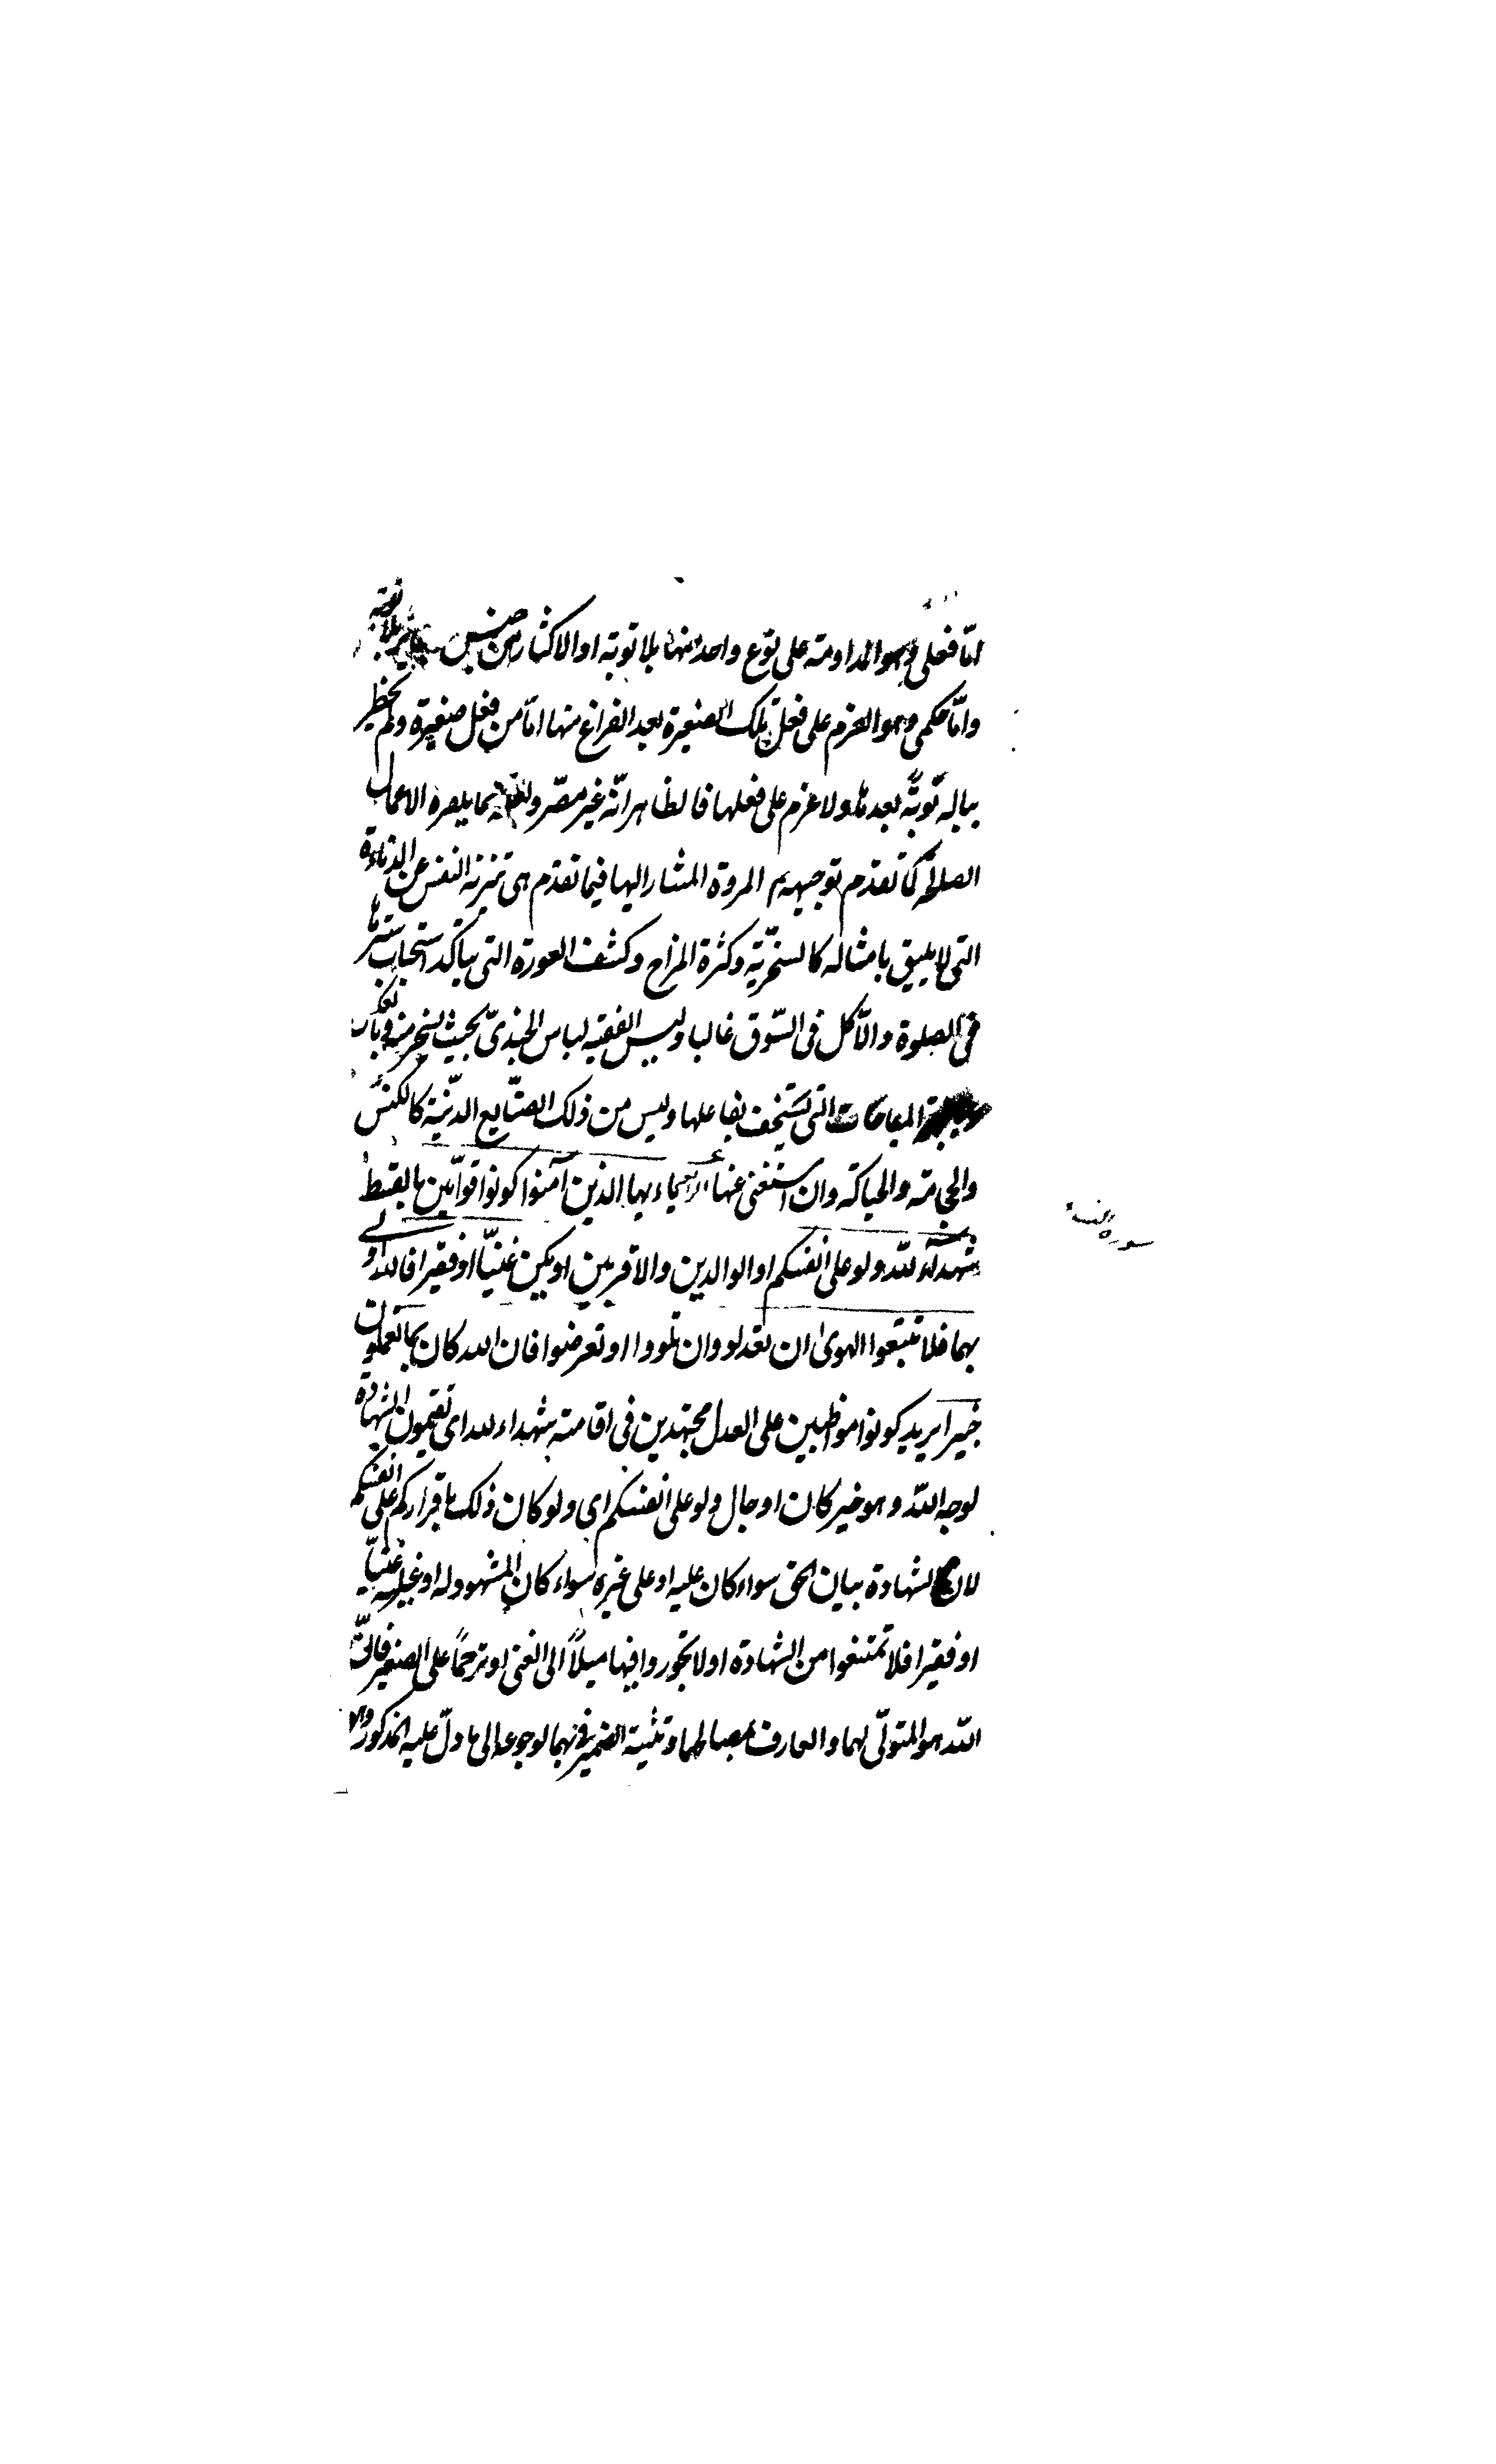 امّا فعلی وهو المداومة علی نوع واحد منها بلا توبة او الاکثار من جنس بلا توبة
وامّا حکمی وهو العزم علی فعل تلک الصغیرة بعد الفراغ منها امّا من فعل صغیرة ولم یخطر
بباله توبة بعدها ولا عزم علی فعلها فالظاهر انّه غیر مصرّ ممّا یکفره الاعمال
الصالحة کما تقدم توجیهه م المروة المشار الیها فیما تقدم هی تنزیه النفس عن الدنائة
التی لا یلیق بامثاله کالسخریّة وکثرة المزاح وکشف العورة التی یتأکد استحباب سترها
فی الصلوة والاکل فی السّوق غالبا ولبس الفقیه لباس الجندیّ بحیث یسخر منه
المباحات التی یستخف بفاعلها ولیس من ذلک الصنایع الدنیّة کالکنس
والحجامة والحیاکة وان استغنی عنها الرابعة یا ایها الذین آمنوا کونوا قوّامین بالقسط
شهدآء لله ولو علی انفسکم او الوالدین والاقربین ان یکن غنیّا او فقیرا فالله اولی
بهما فلا تتبعوا الهوی ان تعدلوا وان تلووا او تعرضوا فان الله کان بما تعملون
خبیرا یرید کونوا مواظبین علی العدل مجتهدین فی اقامته شهداء لله ای تقیمون الشهادة
لوجه الله وهو خبر کان او حال ولو علی انفسکم ای ولو کان ذلک باقرارکم علی انفسکم
لان الشهادة بیان الحق سواء کان علیه او علی غیره سواء کان المشهود له او علیه غنیّا
او فقیرا فلا تمتنعوا من الشهادة او لا تجوروا فیها میلاً الی الغنی او ترحّماً علی الفقیر فانّ
الله هو المتولّی لهما والعارف بمصالحهما وتثنیة الضمیر فی بهما لرجوعه الی ما دلّ علیه المذکور والا
سوره النساء